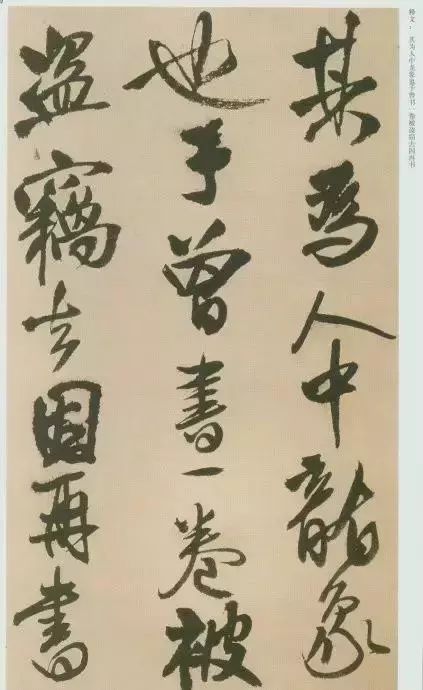 释文：其为人中龙象也予曾书一卷被盗窃去因再书
其為人中龍象
也予曾書一卷被
盜竊去因再書